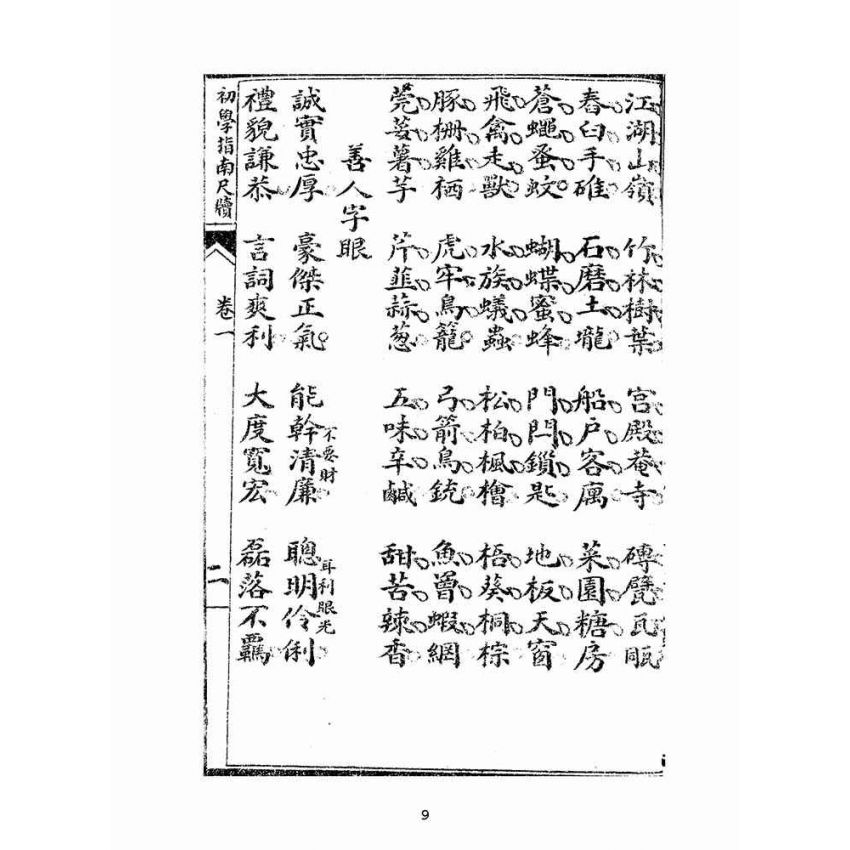 江湖山嶺 竹林樹葉 宮殿菴寺 磚甓瓦瓪
舂臼手碓 石磨土壠 船户客寓 菜園糖房
蒼蠅蚤蚊 蝴蝶蜜蜂 門閂鎖匙 地板天窗
飛禽走獸 水族蟻蟲 松柏楓檜 梧葵桐棕
豚柵雞栖 虎牢鳥籠 弓箭鳥銃 魚罾蝦網
莞荽薯芋 芹韭蒜葱 五味辛鹹 甜苦辣香
善人字眼
誠實忠厚 豪傑正氣 能幹清廉 不要財 聰明伶俐 耳利眼光
禮貌謙恭 言詞爽利 大度寬宏 磊落不羈
初學指南尺牘 卷一 二
9